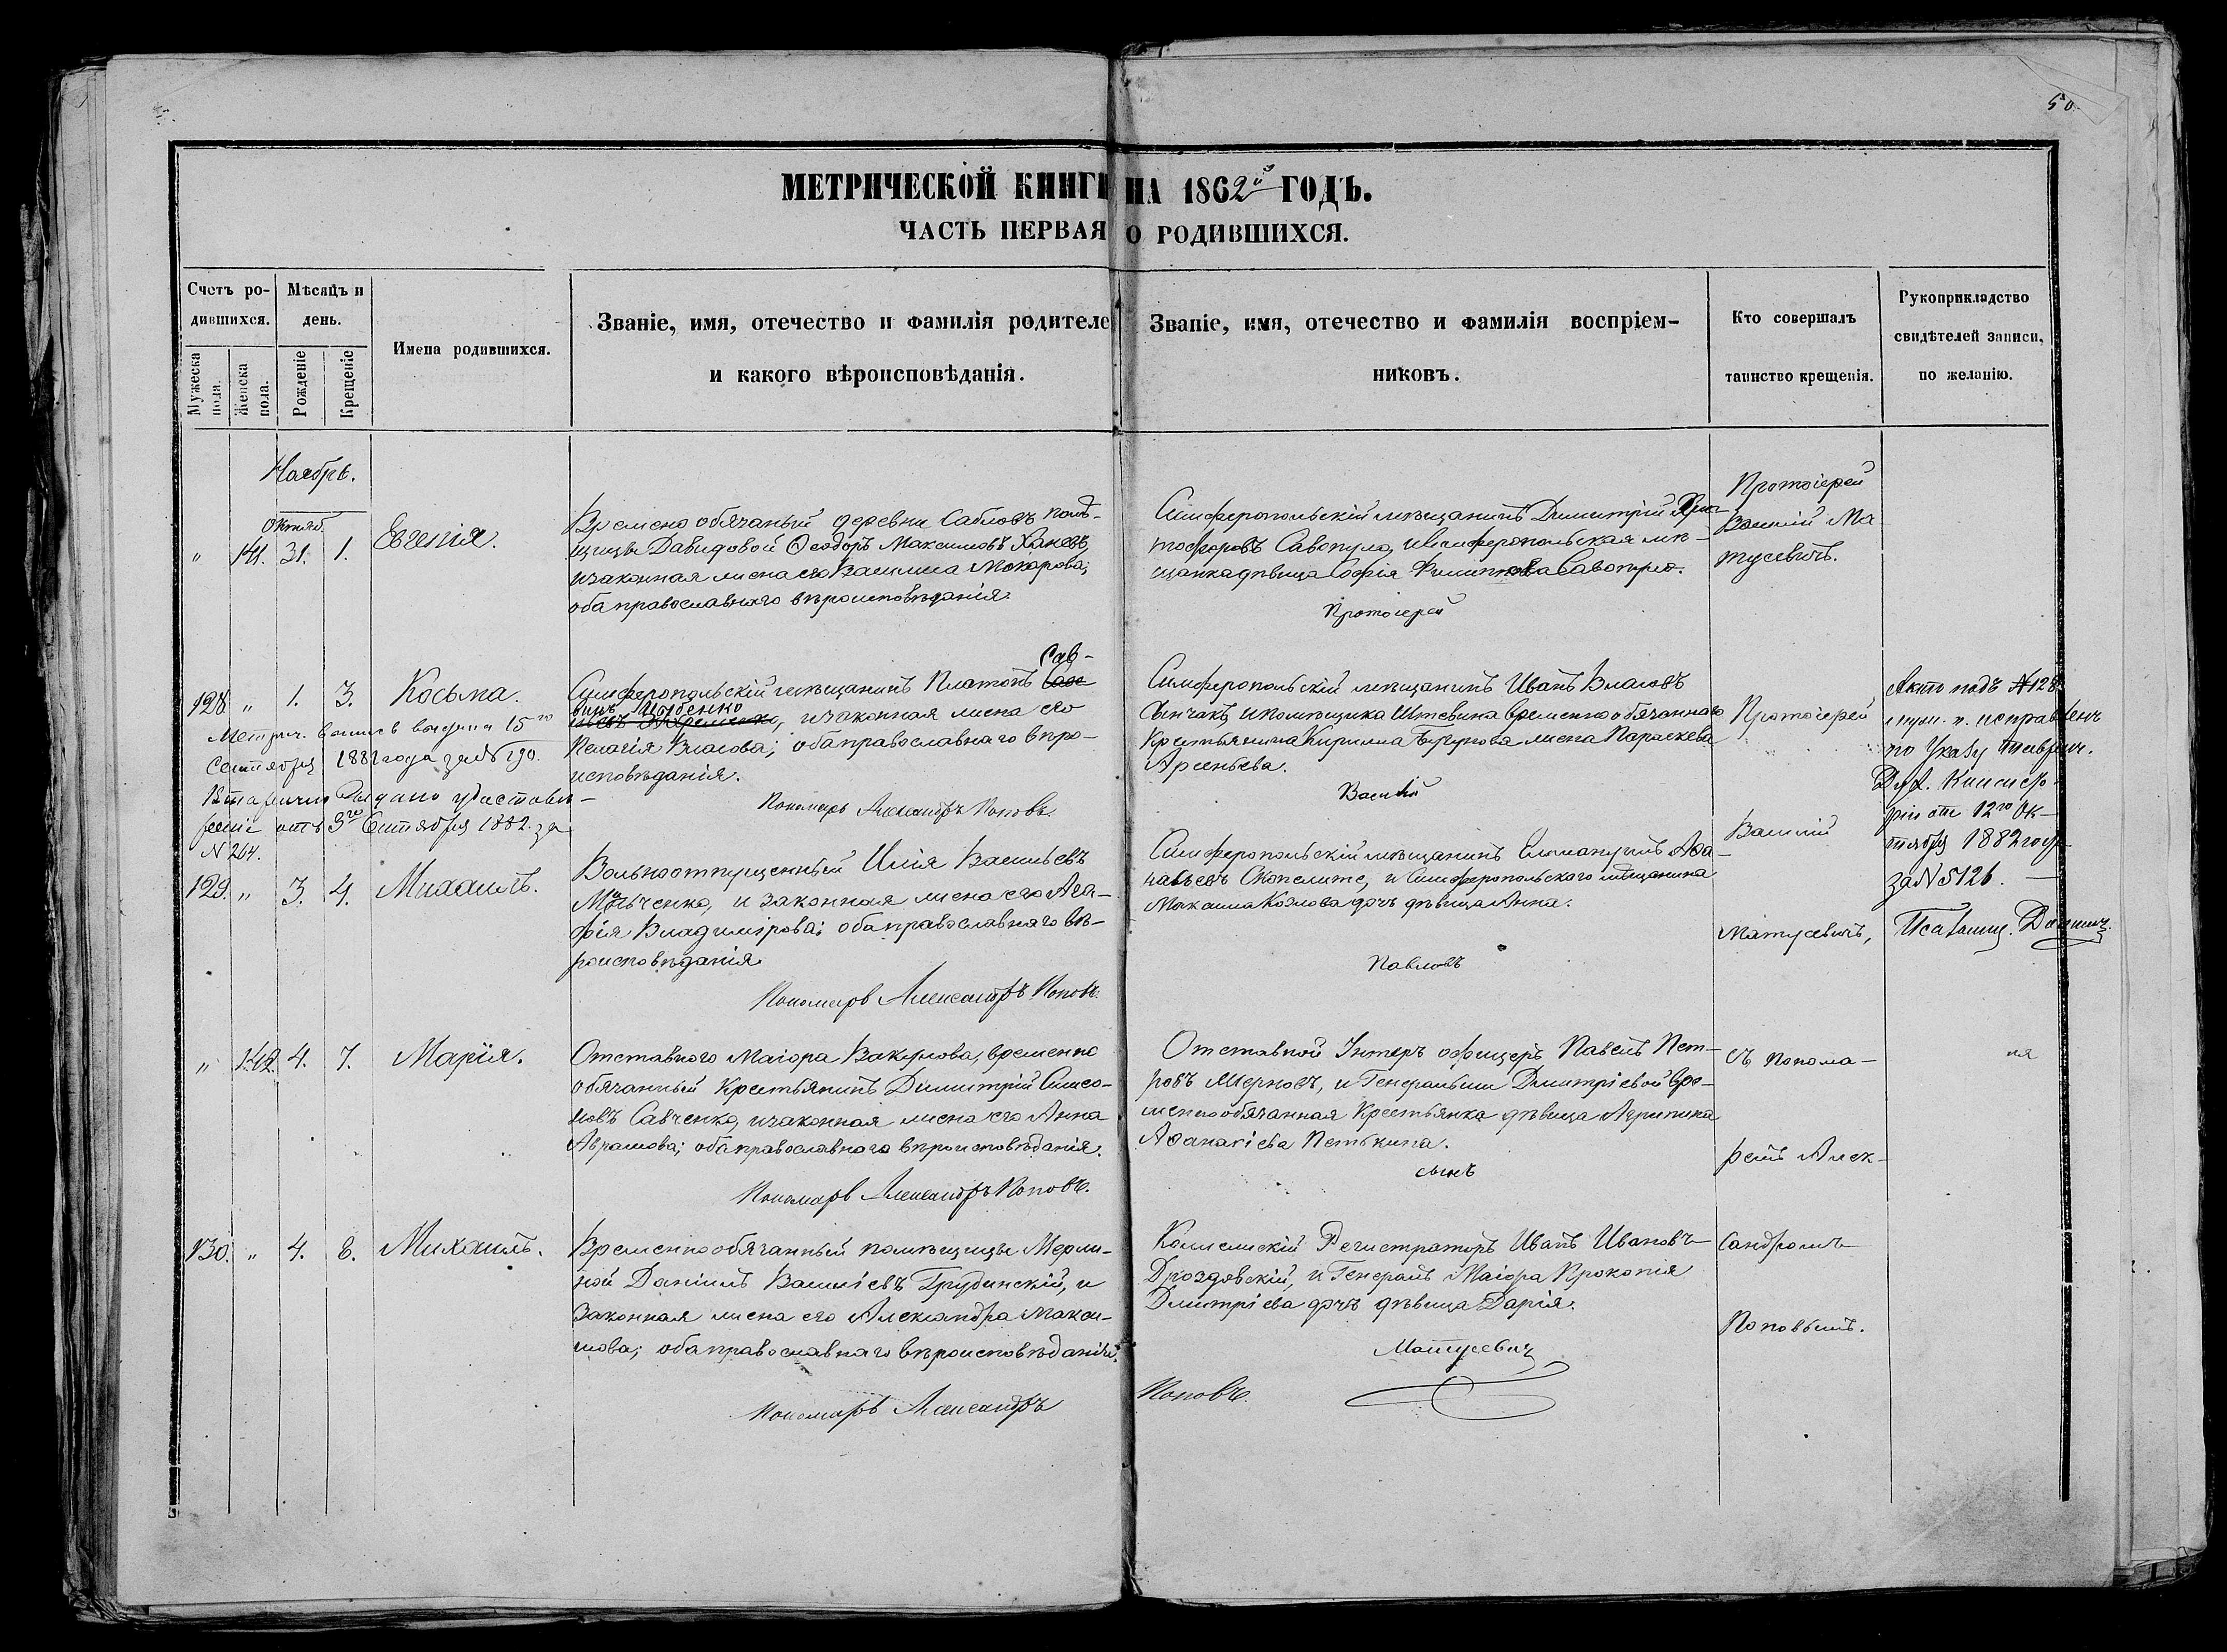 50
МЕТРИЧЕСКОЙ КНИГИ НА 1862й ГОДЪ.
ЧАСТЬ ПЕРВАЯ О РОДИВШИХСЯ.
Счетъ ро-
дившихся.
Мужеска пола.
Женска пола.
Мѣсяцъ и
день.
Рожденіе
Крещеніе
Имена родившихся.
Званіе, имя, отечество и фамилія родителе
и какого вѣроисповѣданія.
Званіе, имя, отечество и фамилія воспріем-
никовъ.
Кто совершалъ
таинство крещенія.
Рукоприкладство
свидѣтелей записи,
по желанію.
Ноябрь.
Октяб.
" 141. 31. 1. Евгенія.
Времено обячаный деревни Сабловъ помѣ-
щицы Давидовой Ѳеодоръ Максимовъ
изаконная жена его Василиса Макарова;
оба православнаго вѣроисповѣданія.
Симферопольскій мѣщанинъ Димитрій Хрис-
тофоровъ Савопуло, и Симферопольская мѣ-
щанка дѣвица Софія Филиппова Савопуло.
Протоіерей
Протоіерей
Василій Ма
тусевичъ.
128. " 1. 3. Косьма.
Сав-
Симферопольскій мѣщанинъ Платонъ
винъ Цыбенко, изаконная жена его
Пелагія Власова; оба православнаго вѣро-
исповѣданія.
Пономарь Александръ Поповъ.
Метрич. выпись выдана 15го
Сентября 1882 года за № 190.
Вторично выдано удостовѣ-
реніе отъ 3го Октября 1882. за
№ 264.
Симферопольскій мѣщанинъ Иванъ Власовъ
и помѣщика временно обячаннаго
Крестьянина Кирилла жена Параскева
Арсеньева.
Василій
Протоіерей
Василій
Актъ подъ № 128
муж. п. исправленъ
по Указу Таврич.
Дух. Консисто-
ріи отъ 12го Ок-
тября 1882 года
за № 5126.
129. " 3. 4. Михаилъ.
Вольноотпущенный Илія Васильевъ
и законная жена его Ага-
фія Владимірова; оба православнаго вѣ-
роисповѣданія.
Пономарь Александръ Поповъ.
Симферопольскій мѣщанинъ Еммануилъ Аѳа-
насьевъ и Симферопольскаго мѣщанина
Максима Козлова дочь дѣвица Анна.
Павловъ
Матусевичъ,
" 142. 4. 7. Марія.
Отставнаго Маіора Вакулова, временно
обячанный Крестьянинъ Димитрій Симео-
новъ Савченко, изаконная жена его Анна
Абрамова; оба православнаго вѣроисповѣданія.
Пономарь Александръ Поповъ.
Отставной Унтеръ офицеръ Павелъ Пет-
ровъ и Генеральши Димитріевой вре-
менно обячанная Крестьянка дѣвица Агрипина
Аѳанасіева Петькина.
сынъ
съ понома-
ремъ Алек-
ня
130. " 4. 8. Михаилъ.
Временно обячанный помѣщицы Мерли-
ной Даніилъ Василіевъ Грудинскій, и
законная жена его Александра Макси-
мова; оба православнаго вѣроисповѣданія.
Пономарь Александръ Поповъ.
Коллежскій Регистраторъ Иванъ Ивановъ
Дроздовскій, и Генералъ Маіора Прокопія
Димитріева дочь дѣвица Дарія.
Матусевич
сандромъ
Поповымъ.